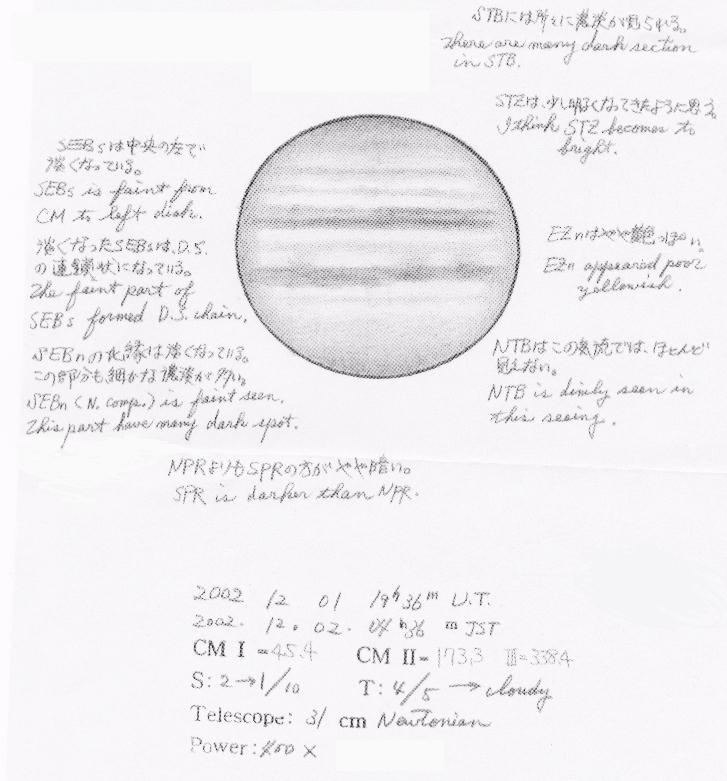 STBには所々に濃淡が見られる。
There are many dark section
in STB.
STZは、少し明るくなってきたように思う。
I think STZ becomes to
bright.
SEBsは中央の左で
淡くなっている。
SEBs is faint from
CM to left dish.
淡くなったSEBsは、D.S.
の連鎖状になっている。
The faint part of
SEBs formed D.S. chain.
SEBnの北縁は淡くなっている。
この部分も細かな濃淡が多い。
SEBn (N. comp.) is faint seen.
This part have many dark spot.
EZnはやや黄色っぽい。
EZn appeared poor
yellowish.
NTBはこの気流では、ほとんど
見えない。
NTB is dimly seen in
this seeing.
NPRよりもSPRの方がやや暗い。
SPR is darker than NPR.
2002 12 01 19h36m U.T.
2002. 12. 02. 04h36m JST
CM I =45.4 CM II=173.3 III=338.4
S: 2→1/10 T: 4/5 → cloudy
Telescope: 31 cm Newtonian
Power: 400 ×